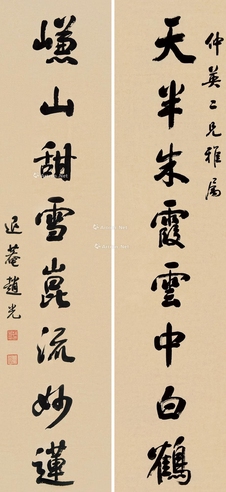 仲英二兄雅属
天半朱霞雲中白鶴
嵰山甜雪崑流妙蓮
退菴趙光